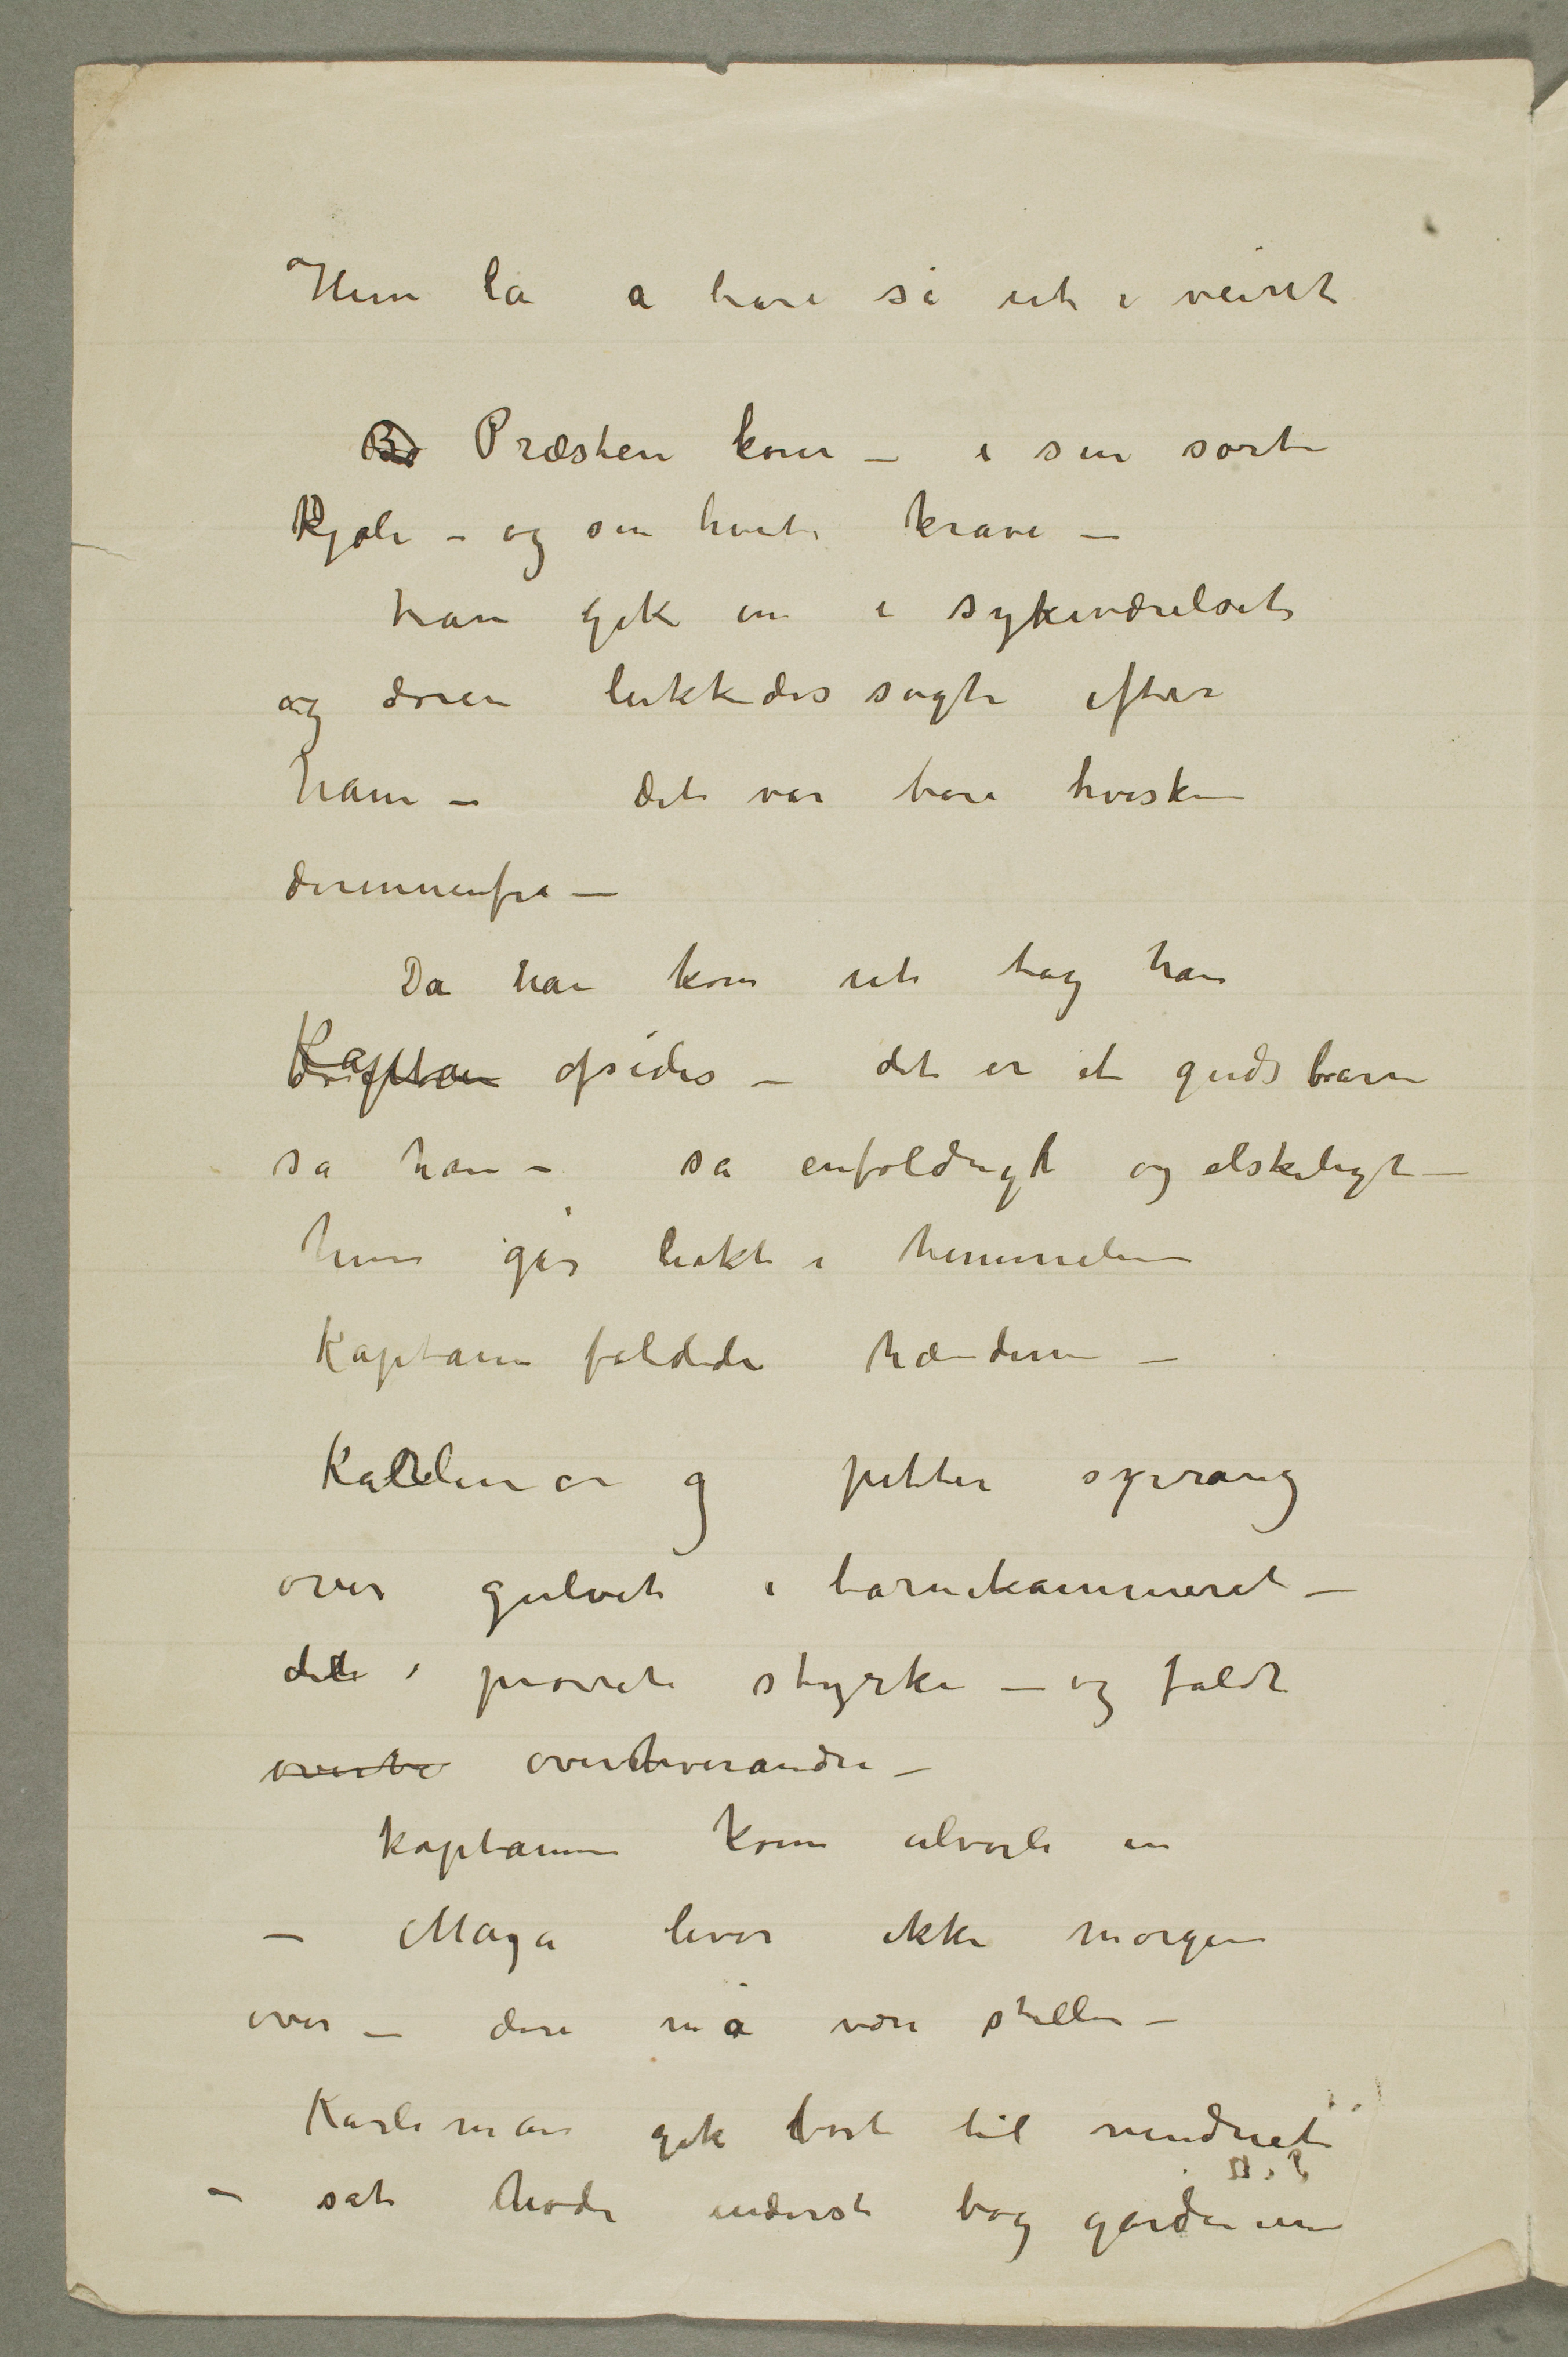 Hun lå å bare så ut i veiret
Præsten kom – i sin sorte
kjole – og sin hvite krave –
han gik in i sykeværelset
og døren lukkedes sagte efter
ham – det var bare hvisken
derinnenfra –
Da han kom ut tog han
Kaptain afsides – det er et guds barn
sa han – så enfoldigt og elskeligt –
hun går lukt i himmelen
Kaptainen foldede hænderne –
Kareleman og petter sprang
over gulvet i barnekammeret –
de prøvet styrke – og faldt
over hverandre –
kaptainen kom alvorli in
– Maja lever ikke morgen
over – dere må være stille –
Karleman gik bort til vinduet
– sat hode inderst bag gardinen